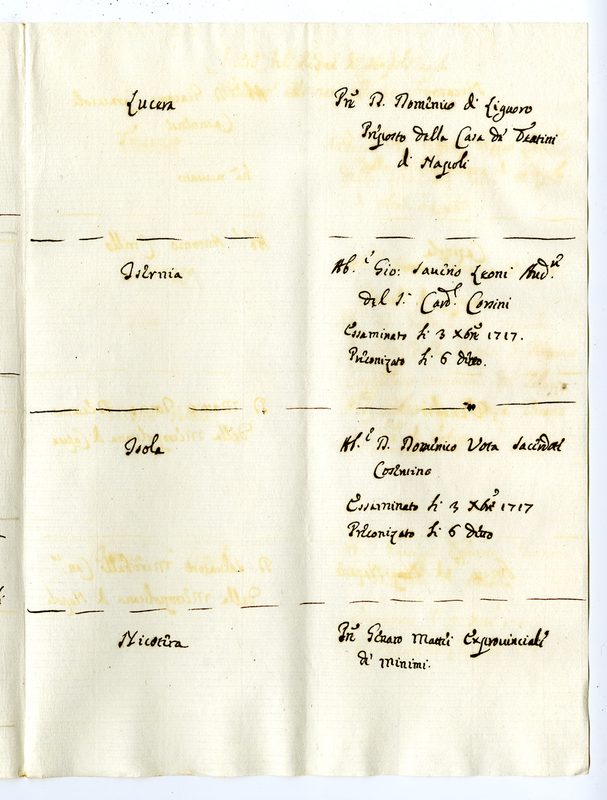 Lucera
Prē D. Domenico di Liguoro
Preposto della Casa de Teatini
di Napoli
Isernia
Ab.e Gio: Saverio Leoni Aud.re
del S.r Card.l Corsini
Essaminato li 3 Xbre 1717.
Preconizato li 6 ditto.
Isola
Ab.e D. Domenico Vota Sacerdote
Cosentino
Essaminato li 3 Xbre 1717
Preconizato li 6 ditto
Nicotera
Prē Genaro Mattei Exprovinciale
de' Minimi.